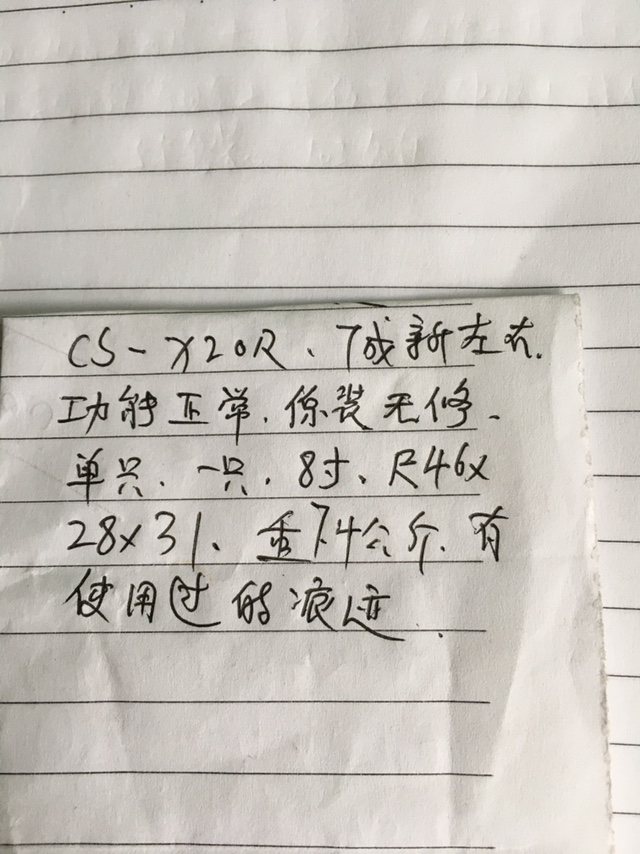 CS-X20R、7成新左右.
功能正常.原装无修、
单只、一只、8寸、尺46x
28x31、重7.4公斤.有
使用过的痕迹.